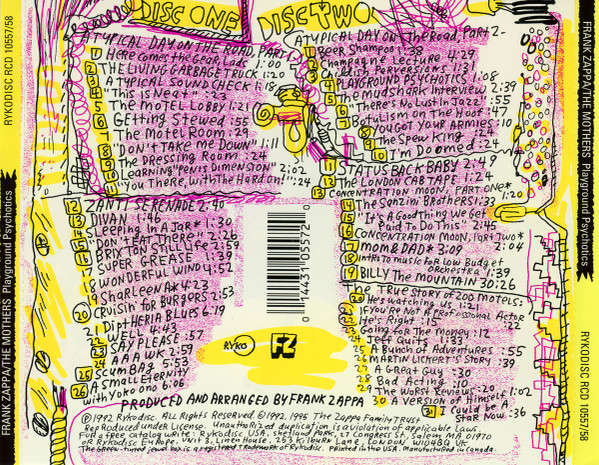 RYKODISC RCD 10557/58
FRANK ZAPPA/THE MOTHERS Playground Psychotics
DISC ONE
A TYPICAL DAY ON THE ROAD, PART 1
1 Here Comes the Gear, Lads 1:00
2 THE LIVING GARBAGE TRUCK 1:20
3 A TYPICAL SOUND CHECK 1:18
4 "This is Neat" :23
5 The MOTEL LOBBY 1:21
6 GEtting Stewed :55
7 The Motel Room :29
8 "DON'T TAKE ME DOWN" 1:11
9 The DRESSING ROOM :24
10 LEARNING "PENIS DIMENSION" 2:02
11 "You There, with the Hard on!" :24
12 ZANTI SERENADE 2:40
13 DIVAN 1:46
14 SLeeping In A Jar* 1:30
15 "DON'T EAT There" 2:26
16 BRIXTON STILL Life 2:59
17 SUPER GREASE 1:39
18 WONDERFUL WIND 4:52
19 SHARLEENA* 4:23
20 CRUISIN' for BURGERS 2:53
21 DIPTHERIA BLUES 6:19
22 WELL 4:43
23 SAY PLEASE :57
24 AAAWK 2:59
25 SCUM BAG 5:53
26 A SMALL ETERNITY
with Yoko Ono 6:06
DISC TWO
A TYPICAL DAY ON The Road, Part 2-
1 Beer Shampoo 1:38
2 Champagne Lecture 4:29
3 Childish Perversions 1:31
4 PLAYGROUND PSYCHOTICS 1:08
5 The Mudshark Interview 2:39
6 "There's No Lust In Jazz" :55
7 BOTULISM ON The HOOF :47
8 YOU GOT YOUR ARMIES :10
9 The Spew King :24
10 I'm Doomed :24
11 STATUS BACK BABY 2:49
12 The LONDON CAB TAPE 1:24
13 CONCENTRATION MOON, PART ONE* 1:20
14 The Sanzini Brothers 1:33
15 "It's A Good Thing We Get
Paid To Do This" 2:45
16 CONCENTRATION MOON, PART TWO* 2:04
17 MOM & DAD* 3:09
18 INtRO to MUSIC FOR LOW Budget
Orchestra 1:39
19 BILLY The MOUNTAIN 30:26
The TRUE STORY OF 200 MOTELS:
20 He's watching us 1:21
21 IF YOU'RE Not A Professional Actor :22
22 He's Right :15
23 Going for The Money :12
24 Jeff Quits 1:33
25 A Bunch of Adventures :55
26 MARTIN LICKERT'S STORY :39
27 A GREAT Guy :30
28 Bad Acting :10
29 The Worst Reviews :20
30 A Version of Himself 1:02
31 I Could be A
Star Now :36
0 14431 05572 0
RYKO
FZ
PRODUCED AND ARRANGED BY FRANK ZAPPA
©1992 Rykodisc. ALL Rights RESERVED ℗1992, 1995 The Zappa Family TRUST
Reproduced under License. Unauthorized duplication is a violation of applicable Laws.
For a free catalog write: Rykodisc USA, Shetland Park, 27 Congress St. Salem, MA 01970
or Rykodisc Europe: Unit 3, Linen House, 253 Kilburn Lane, London W10 4BQ UK
The Green-tinted jewel box is a registered trademark of Rykodisc. Printed in the USA. manufactured in Canada.
FRANK ZAPPA/THE MOTHERS Playground Psychotics
RYKODISC RCD 10557/58